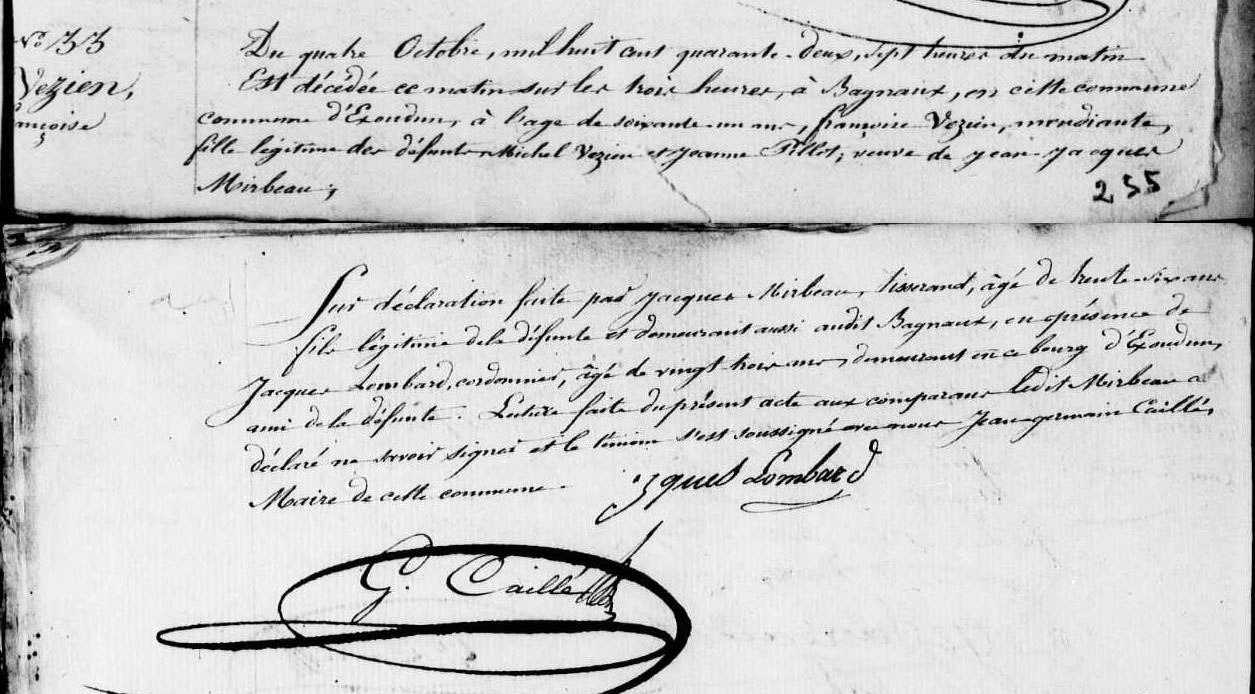 No 33
Vezien,
ançoise
Du quatre Octobre, mil huit cent quarante-deux, sept heures du matin
Est décédée ce matin sur les trois heures, à Bagnaux, en cette commune
commune d'Exoudun, à l'age de soixante-un ans, françoise Vezien, mendiante,
fille légitime des défunts Michel Vezien et Jeanne Pillot, veuve de Jean-Jacques
Mirbeau;
255
Sur déclaration faite par Jacques Mirbeau, tisserand, âgé de trente-six ans
fils légitime de la défunte et demeurant aussi audit Bagnaux, en présence de
Jacques Lombard, cordonnier, âgé de vingt trois ans, demeurant en ce bourg d'Exoudun,
ami de la défunte. Lecture faite du présent acte aux comparans ledit Mirbeau a
déclaré ne savoir signer et le témoin s'est soussigné avec nous Jean-germain Caillé,
Maire de cette commune.
jques Lombard
G. Caillé